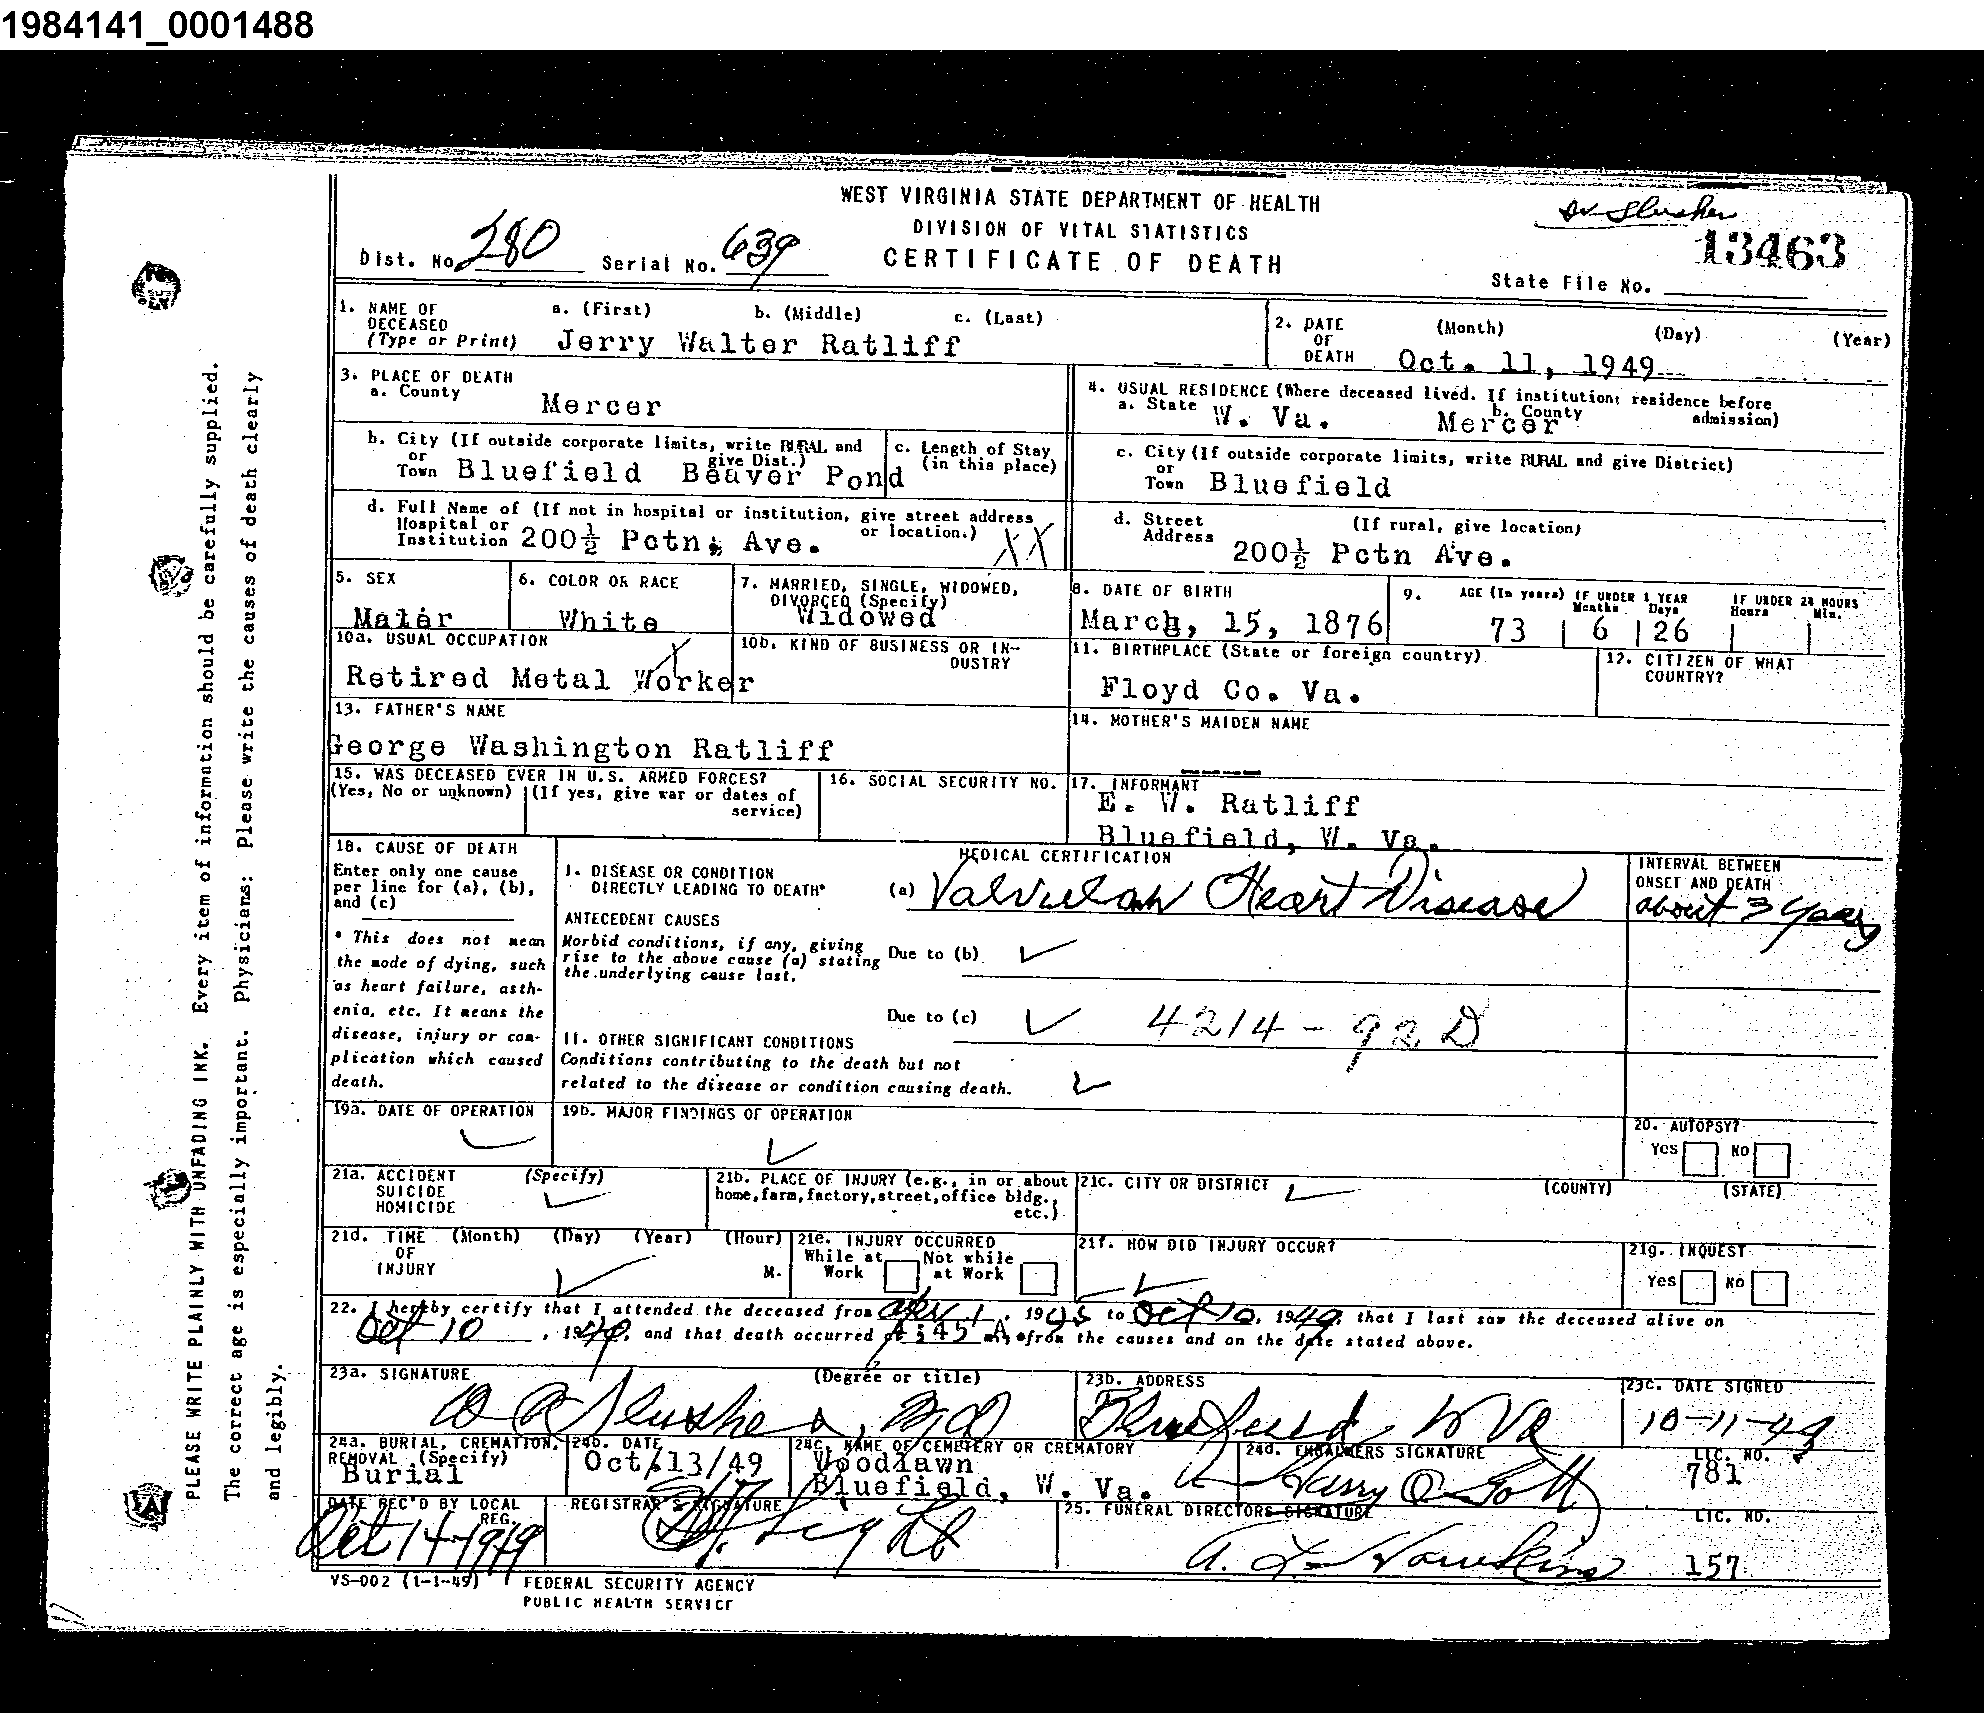 1984141_0001488
WEST VIRGINIA STATE DEPARTMENT OF HEALTH
DIVISION OF VITAL STATISTICS
CERTIFICATE OF DEATH
Dr Slusher
13463
Dist. No. 280 Serial No. 639
State File No.
1. NAME OF DECEASED (Type or Print) a. (First) b. (Middle) c. (Last)
Jerry Walter Ratliff
2. DATE OF DEATH (Month) (Day) (Year)
Oct. 11, 1949
3. PLACE OF DEATH
a. County Mercer
4. USUAL RESIDENCE (Where deceased lived. If institution: residence before admission)
a. State W. Va. b. County Mercer
b. City (If outside corporate limits, write RURAL and give Dist.)
or Town Bluefield Beaver Pond
c. Length of Stay (in this place)
c. City (If outside corporate limits, write RURAL and give District)
or Town Bluefield
d. Full Name of (If not in hospital or institution, give street address or location.)
Hospital or Institution 200½ Pctn. Ave. XX
d. Street Address (If rural, give location)
200½ Pctn Ave.
5. SEX
6. COLOR OR RACE
White
7. MARRIED, SINGLE, WIDOWED, DIVORCED (Specify)
Widowed
8. DATE OF BIRTH
March, 15, 1876
9. AGE (In years) IF UNDER 1 YEAR Months Days IF UNDER 24 HOURS Hours Min.
73 6 26
10a. USUAL OCCUPATION
Retired Metal Worker
10b. KIND OF BUSINESS OR INDUSTRY
11. BIRTHPLACE (State or foreign country)
Floyd Co. Va.
12. CITIZEN OF WHAT COUNTRY?
13. FATHER'S NAME
George Washington Ratliff
14. MOTHER'S MAIDEN NAME
15. WAS DECEASED EVER IN U.S. ARMED FORCES?
(Yes, No or unknown) (If yes, give war or dates of service)
16. SOCIAL SECURITY NO.
17. INFORMANT
E. W. Ratliff
Bluefield, W. Va.
18. CAUSE OF DEATH
Enter only one cause per line for (a), (b), and (c)
* This does not mean the mode of dying, such as heart failure, asthenia, etc. It means the disease, injury or complication which caused death.
MEDICAL CERTIFICATION
I. DISEASE OR CONDITION DIRECTLY LEADING TO DEATH* (a) Valvular Heart Disease
INTERVAL BETWEEN ONSET AND DEATH
about 3 years
ANTECEDENT CAUSES
Morbid conditions, if any, giving rise to the above cause (a) stating the underlying cause last.
Due to (b) ✓
Due to (c) ✓ 4214 - 92 D
II. OTHER SIGNIFICANT CONDITIONS
Conditions contributing to the death but not related to the disease or condition causing death. ✓
19a. DATE OF OPERATION ✓
19b. MAJOR FINDINGS OF OPERATION ✓
20. AUTOPSY?
Yes No
21a. ACCIDENT SUICIDE HOMICIDE (Specify) ✓
21b. PLACE OF INJURY (e.g., in or about home, farm, factory, street, office bldg., etc.)
21c. CITY OR DISTRICT ✓ (COUNTY) (STATE)
21d. TIME OF INJURY (Month) (Day) (Year) (Hour) M. ✓
21e. INJURY OCCURRED
While at Work Not while at Work
21f. HOW DID INJURY OCCUR? ✓
21g. INQUEST
Yes No
22. I hereby certify that I attended the deceased from 1, 19 to Oct 10, 1949, that I last saw the deceased alive on
Oct 10, 1949, and that death occurred at :45 A m., from the causes and on the date stated above.
23a. SIGNATURE (Degree or title)
Slusher, MD
23b. ADDRESS
Bluefield W Va
23c. DATE SIGNED
10-11-49
24a. BURIAL, CREMATION, REMOVAL (Specify)
Burial
24b. DATE
Oct. 13/49
24c. NAME OF CEMETERY OR CREMATORY
Woodlawn
Bluefield, W. Va.
24d. EMBALMERS SIGNATURE LIC. NO.
781
DATE REC'D BY LOCAL REG.
Oct 14 1949
REGISTRAR'S SIGNATURE
25. FUNERAL DIRECTORS SIGNATURE LIC. NO.
A. L. Hawkins 157
VS-002 (1-1-49) FEDERAL SECURITY AGENCY
PUBLIC HEALTH SERVICE
PLEASE WRITE PLAINLY WITH UNFADING INK. Every item of information should be carefully supplied.
The correct age is especially important. Physicians: Please write the causes of death clearly
and legibly.